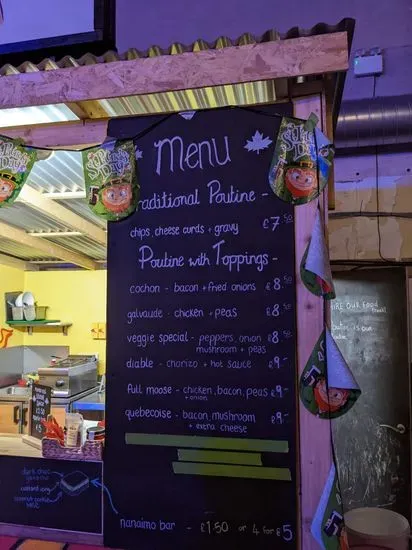 Menu
Traditional Poutine -
chips, cheese curds + gravy £7.50
Poutine with Toppings -
cochon - bacon + fried onions £8.50
galvaude - chicken + peas £8.50
veggie special - peppers, onion £8.50
mushroom + peas
diable - chorizo + hot sauce £9-
full moose - chicken, bacon, peas £9-
+ onion
quebecoise - bacon, mushroom £9-
+ extra cheese
nanaimo bar - £1.50 or 4 for £5
dark choc
ganache
custard icing
coconut cookie
base
OUR Food
is our
St Patrick's
Day
St Patrick's